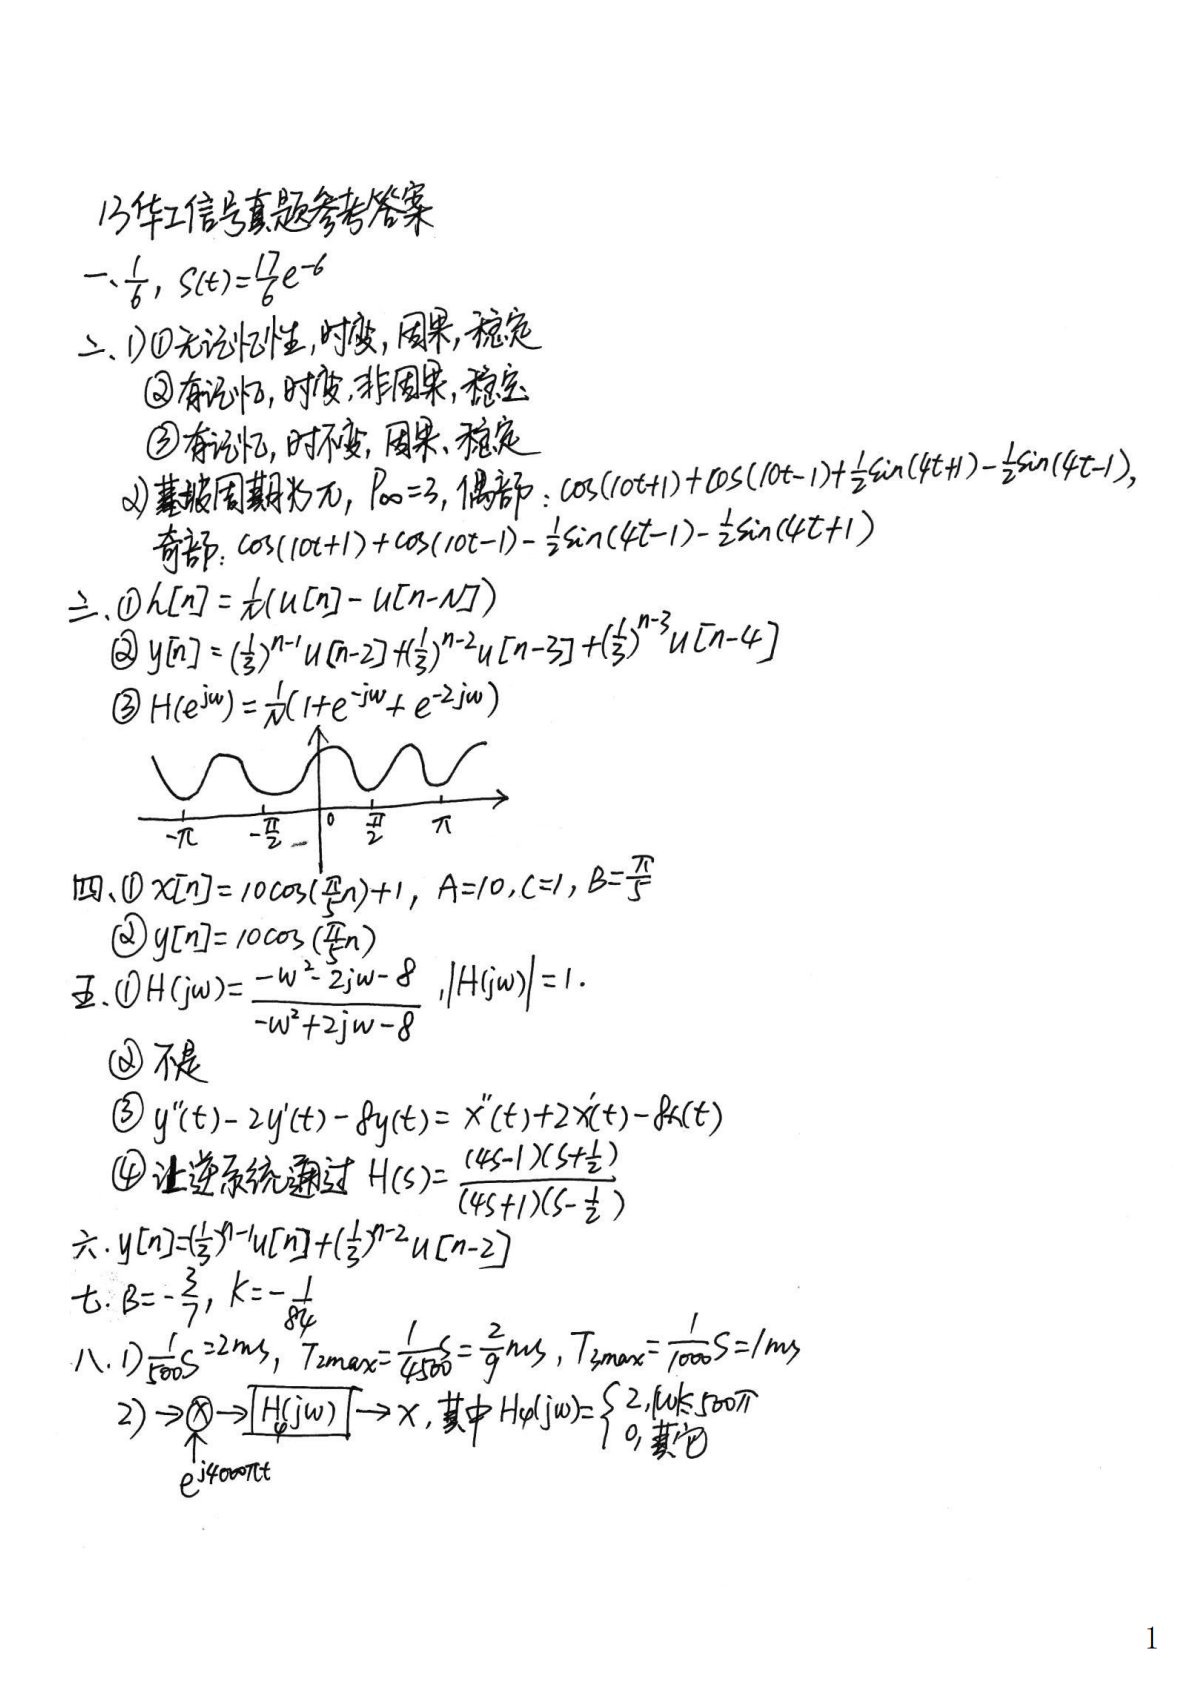 13华工信号真题参考答案
一、1/6, S(t)=17/6 e^-6
二、1)①无记忆性,时变,因果,稳定
②有记忆,时变,非因果,稳定
③有记忆,时不变,因果、稳定
2)基波周期为π, P∞=3, 偶部: cos(10t+1)+cos(10t-1)+1/2 sin(4t+1)-1/2 sin(4t-1),
奇部: cos(10t+1)+cos(10t-1)-1/2 sin(4t-1)-1/2 sin(4t+1)
三、①h[n]=1/N(u[n]-u[n-N])
②y[n]=(1/3)^n-1 u[n-2]+(1/3)^n-2 u[n-3]+(1/3)^n-3 u[n-4]
③H(e^jw)=1/N(1+e^-jw+e^-2jw)
-π -π/2 0 π/2 π
四、①x[n]=10cos(π/5 n)+1, A=10, C=1, B=π/5
②y[n]=10cos(π/5 n)
五、①H(jw)=(-w²-2jw-8)/(-w²+2jw-8), |H(jw)|=1.
②不是
③y''(t)-2y'(t)-8y(t)=x''(t)+2x'(t)-8x(t)
④让逆系统通过 H(s)=(4s-1)(s+1/2)/(4s+1)(s-1/2)
六. y[n]=(1/3)^n-1 u[n]+(1/3)^n-2 u[n-2]
七. B=-3/7, K=-1/84
八. 1) 1/500 S=2ms, T2max=1/4500 S=2/9 ms, T3max=1/1000 S=1ms
2) →X→H4(jw)→x, 其中 H4(jw)={2, |w|<500π
0, 其它
e^j4000πt
1